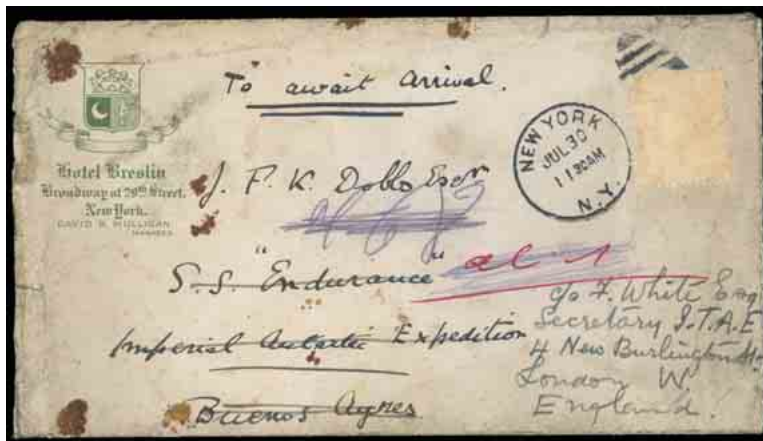 To await Arrival.
Hotel Breslin
Broadway at 29th Street,
New York.
DAVID B. MULLIGAN
MANAGER
NEW YORK
JUL 30
11 30 AM
N.Y.
J. F. K. Dobbs Esqr
S.S. "Endurance"
Imperial Antartic Expedition
Buenos Ayres
c/o F. White Esq
Secretary I.T.A.E
4 New Burlington St.
London W.
England.